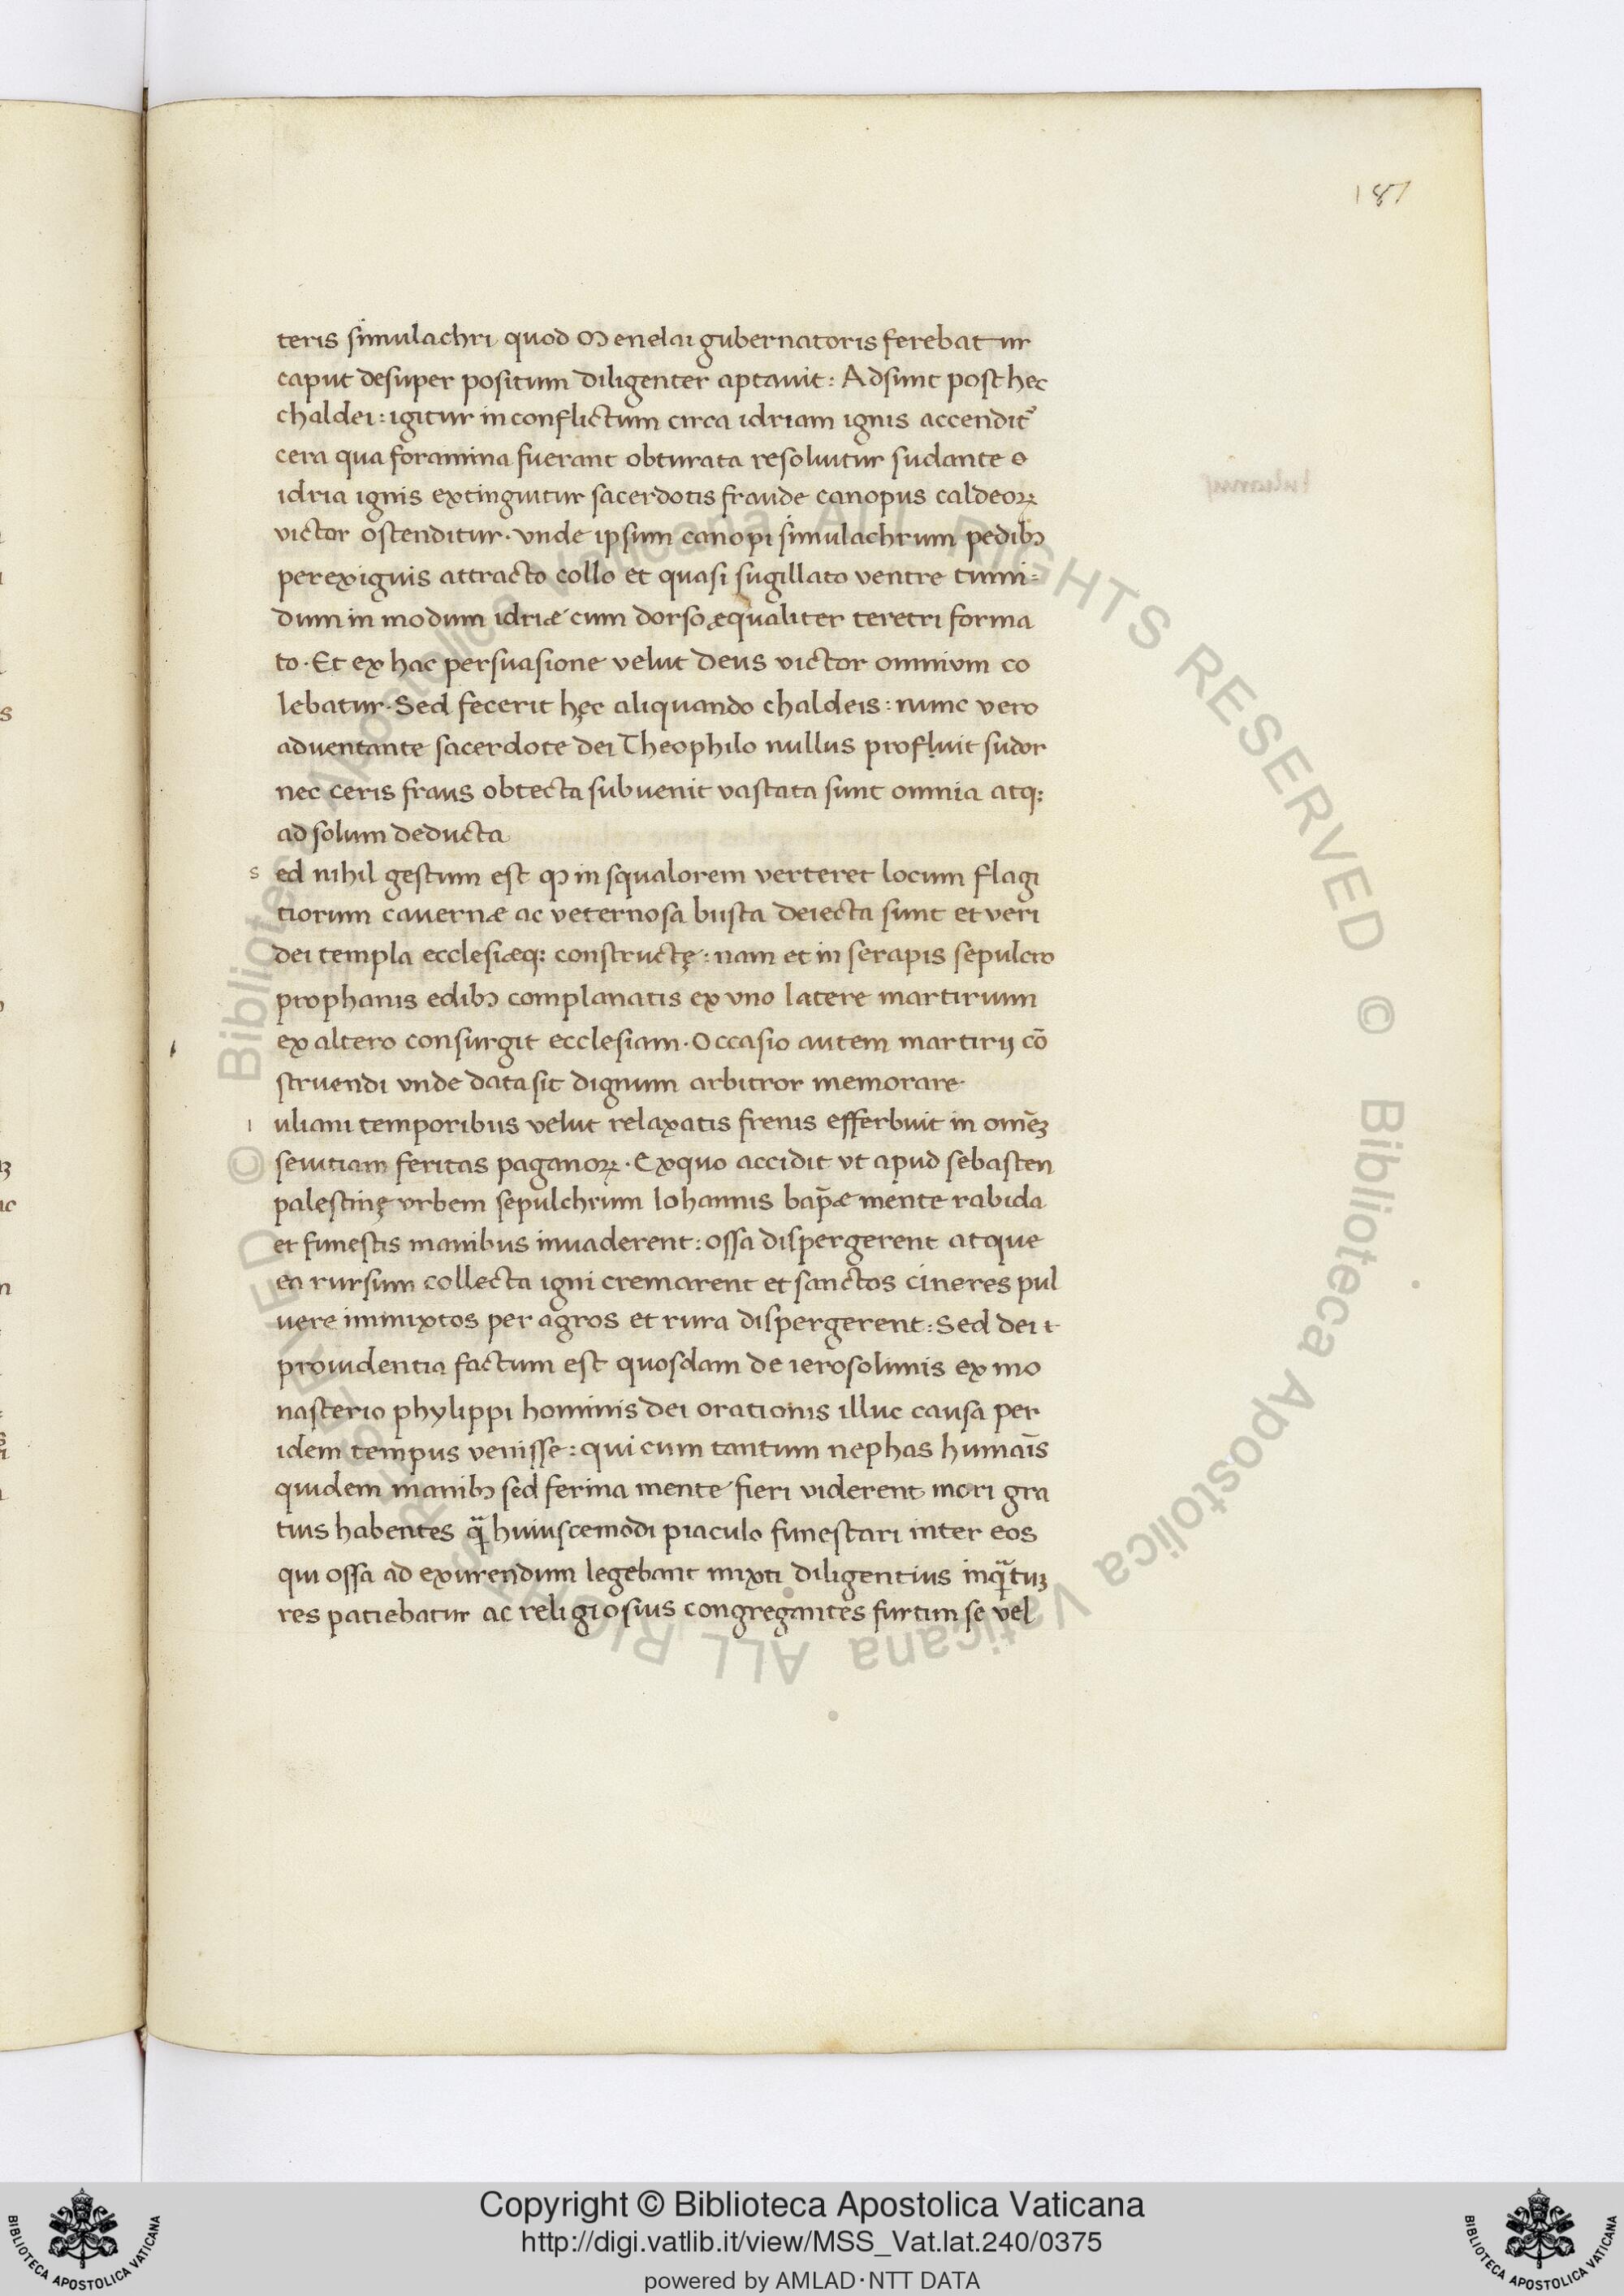 187
teris simulachri quod Menelai gubernatoris ferebatur
caput desuper positum diligenter aptauit: Adsunt post hec
chaldei: igitur in conflictum circa idriam ignis accendit᾽
cera qua foramina fuerant obturata resoluitur sudante
idria ignis extinguitur sacerdotis fraude canopus caldeoꝝ
victor ostenditur· vnde ipsum canopi simulachrum pedibꝫ
perexiguis attracto collo et quasi sugillato ventre tumi-
dum in modum idriæ cum dorso æqualiter teretri forma
to· Et ex hac persuasione velut deus victor omnium co
lebatur· Sed fecerit hęc aliquando chaldeis: nunc vero
aduentante sacerdote dei Theophilo nullus profluit sudor
nec ceris fraus obtecta subuenit vastata sunt omnia atqꝫ
ad solum deducta
s ed nihil gestum est ꝙ in squalorem verteret locum flagi
tiorum cauernæ ac veternosa busta deiecta sunt et veri
dei templa ecclesiæqꝫ constructę: nam et in serapis sepulcro
prophanis edibꝫ complanatis ex vno latere martirium
ex altero consurgit ecclesiam· Occasio autem martirij cō
struendi vnde data sit dignum arbitror memorare
i uliani temporibus velut relaxatis frenis efferbuit in omēꝫ
seuitiam feritas paganoꝝ· Ex quo accidit vt apud sebasten
palestinę vrbem sepulchrum Iohannis bap̄æ mente rabida
et funestis manibus inuaderent: ossa dispergerent atque
ea rursum collecta igni cremarent et sanctos cineres pul
uere immixtos per agros et rura dispergerent: Sed dei
prouidentia factum est quosdam de ierosolimis ex mo
nasterio phylippi hominis dei orationis illuc causa per
idem tempus venisse: qui cum tantum nephas humaīs
quidem manibꝫ sed ferina mente fieri viderent mori gra
tius habentes qᷓ huiuscemodi piaculo funestari inter eos
qui ossa ad exurendum legebant mixti diligentius inqᷓtuꝫ
res patiebatur ac religiosius congregantes furtim se vel
© Biblioteca Apostolica Vaticana ALL RIGHTS RESERVED © Biblioteca Apostolica Vaticana ALL RIGHTS RESERVED
Copyright © Biblioteca Apostolica Vaticana
http://digi.vatlib.it/view/MSS_Vat.lat.240/0375
powered by AMLAD·NTT DATA
BIBLIOTECA APOSTOLICA VATICANA
BIBLIOTECA APOSTOLICA VATICANA